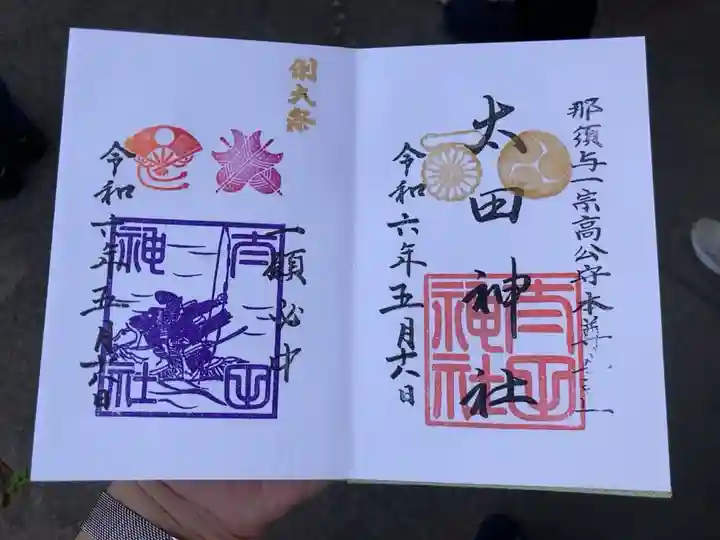 那須与一宗高公守本尊
太田神社
令和六年五月十八日
太田神社
例大祭
一願必中
令和六年五月十八日
太田神社